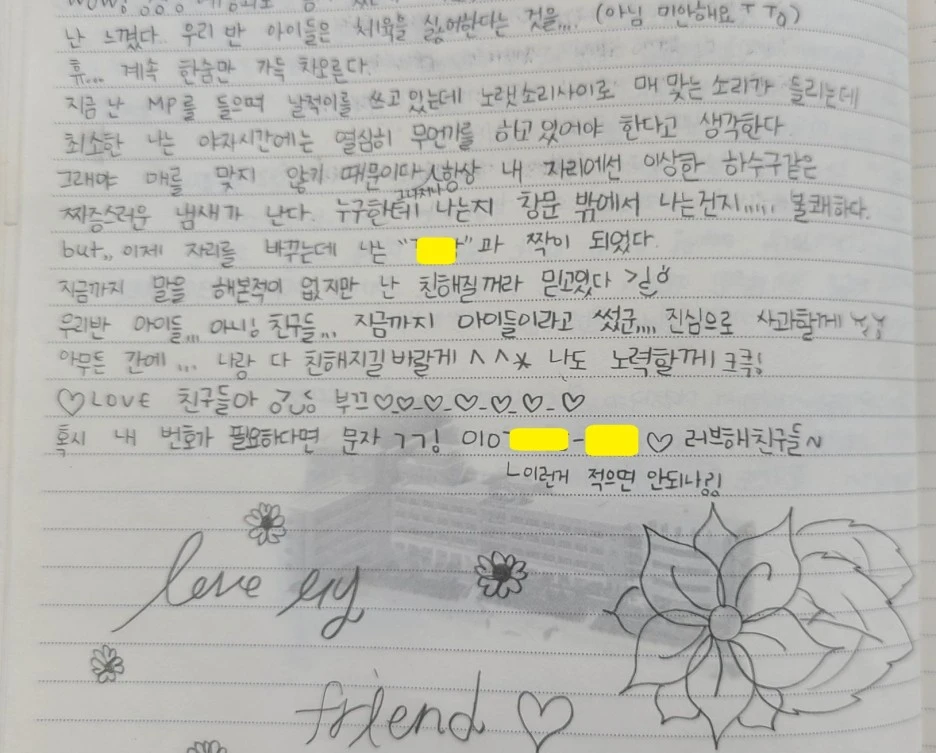 난 느꼈다.. 우리 반 아이들은 체육을 싫어한다는 것을... (아님 미안해요 ㅜㅜ)
휴... 계속 한숨만 가득 차오른다.
지금 난 MP를 들으며 날적이를 쓰고 있는데 노랫소리사이로 매 맞는 소리가 들리는데
최소한 나는 야자시간에는 열심히 무언가를 하고 있어야 한다고 생각한다
그래야 매를 맞지 않기 때문이다 항상 내 자리에선 이상한 하수구같은
그나저나
짜증스러운 냄새가 난다. 누구한테 나는지 창문 밖에서 나는건지..... 불쾌하다.
but,, 이제 자리를 바꾸는데 나는 " " 과 짝이 되었다.
지금까지 말을 해본적이 없지만 난 친해질꺼라 믿고있다
우리반 아이들,,, 아니! 친구들,,, 지금까지 아이들이라고 썼군,,,, 진심으로 사과할께
아무든 간에 ... 나랑 다 친해지길 바랄게 ^^* 나도 노력할께! 크큭!
♡LOVE 친구들아 부끄♡_♡_♡_♡_♡_♡_♡
혹시 내 번호가 필요하다면 문자 ㄱㄱ! 010- - ♡ 러브해친구들~
ㄴ이런거 적으면 안되나?!
love my
friend ♡